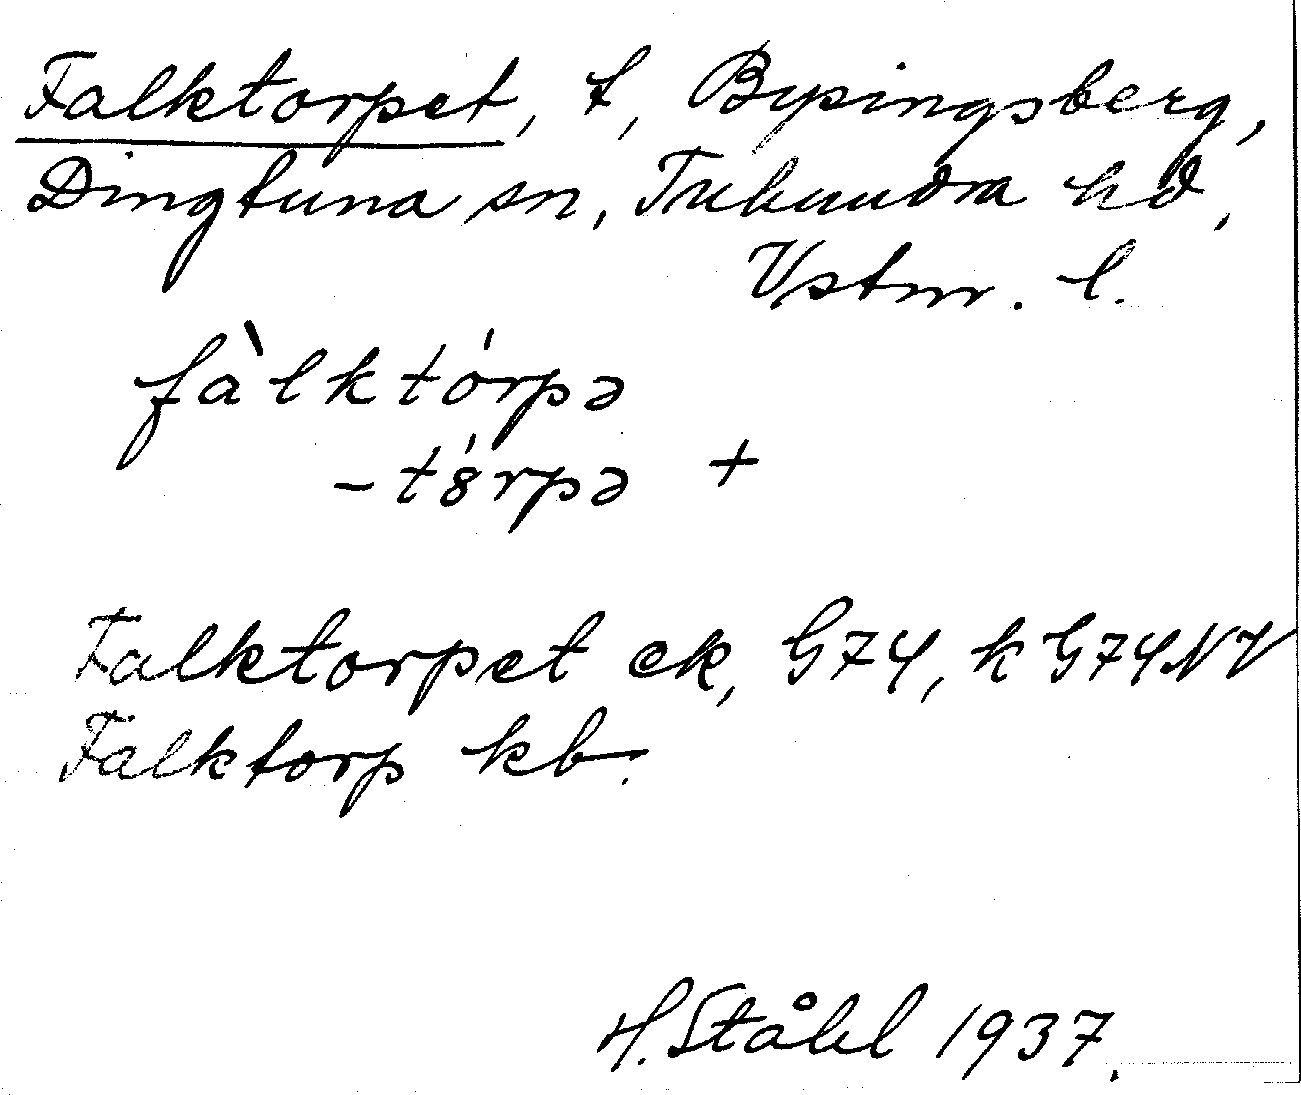 Falktorpet, t, Bysingsberg,
Dingtuna sn, Tuhundra hd,
Vstm. l.
fàlktórpə
-tórpə +
Falktorpet ek, G74, k G74NV
Falktorp kb.
H. Ståhl 1937.